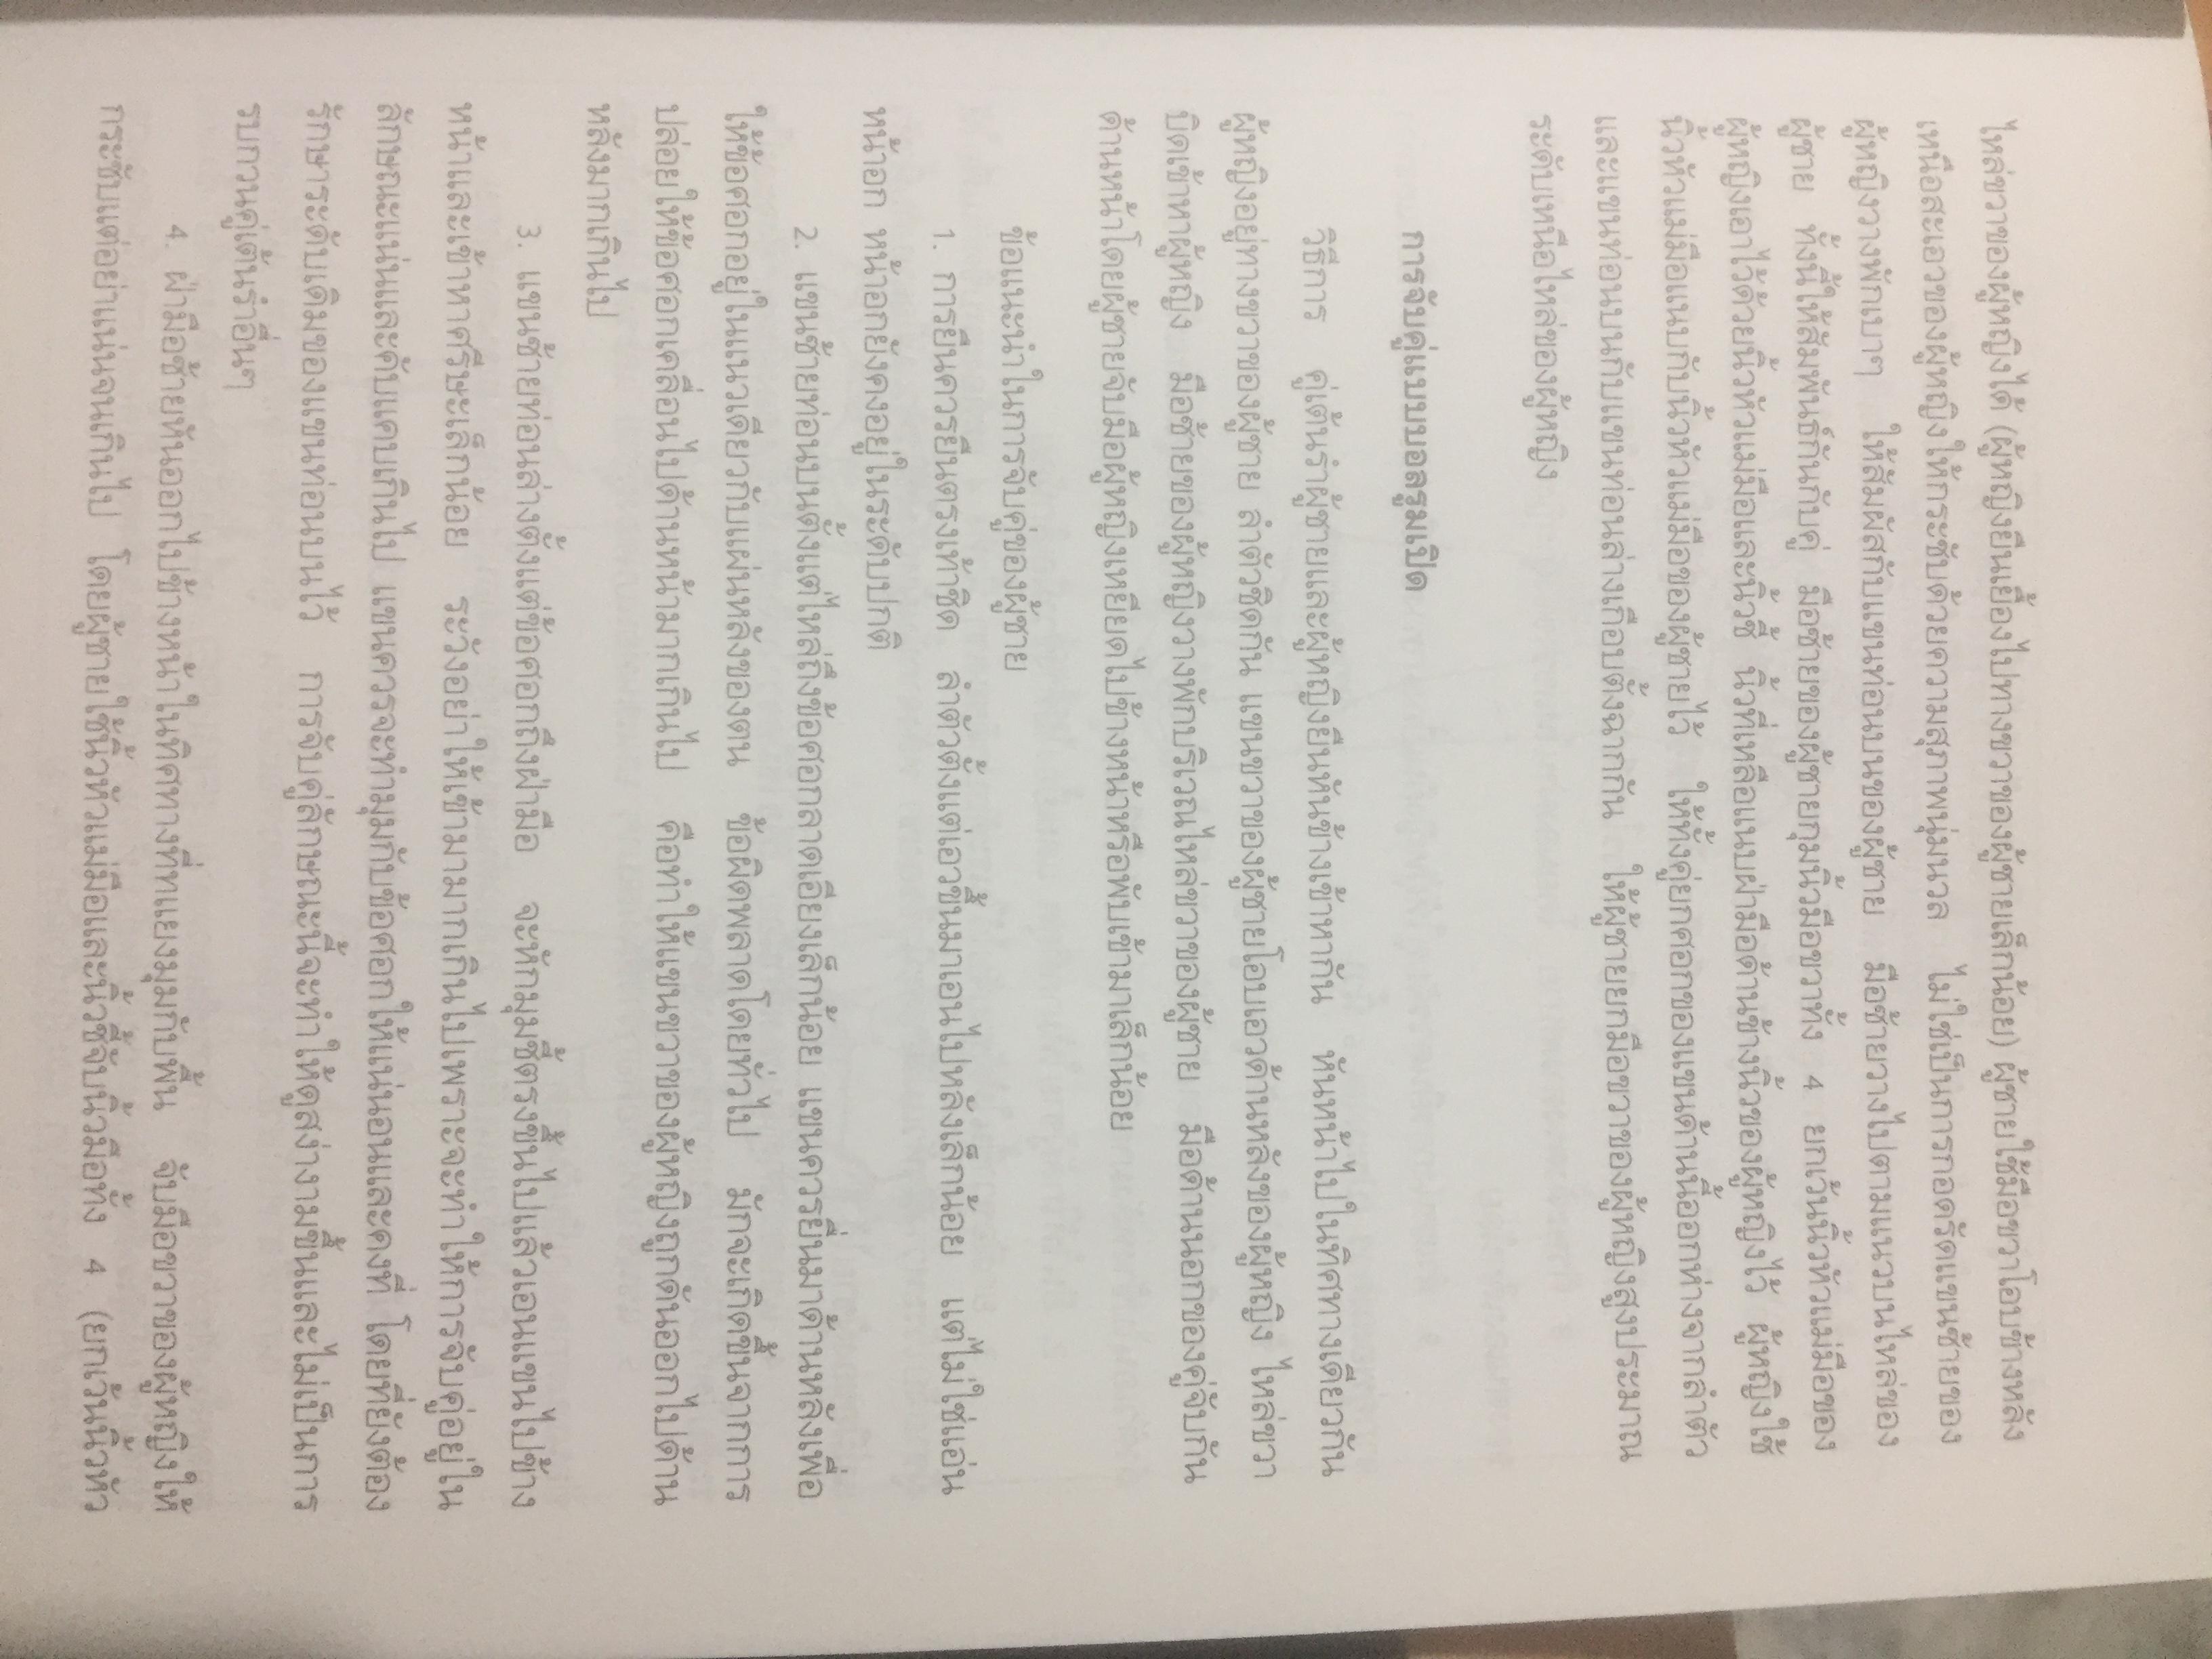 ไหล่ขวาของผู้หญิงได้ (ผู้หญิงยืนเยื้องไปทางขวาของผู้ชายเล็กน้อย) ผู้ชายใช้มือขวาโอบข้างหลัง
เหนือสะเอวของผู้หญิงให้กระชับด้วยความสุภาพนุ่มนวล ไม่ใช่เป็นการกอดรัดแขนซ้ายของ
ผู้หญิงวางพักเบาๆ ให้สัมผัสกับแขนท่อนบนของผู้ชาย มือซ้ายวางไปตามแนวบนไหล่ของ
ผู้ชาย ทั้งนี้ให้สัมพันธ์กันกับคู่ มือซ้ายของผู้ชายกุมนิ้วมือขวาทั้ง 4 ยกเว้นนิ้วหัวแม่มือของ
ผู้หญิงเอาไว้ด้วยนิ้วหัวแม่มือและนิ้วชี้ นิ้วที่เหลือแนบฝ่ามือด้านข้างนิ้วของผู้หญิงไว้ ผู้หญิงใช้
นิ้วหัวแม่มือแนบกับนิ้วหัวแม่มือของผู้ชายไว้ ให้ทั้งคู่ยกศอกของแขนด้านนี้ออกห่างจากลำตัว
และแขนท่อนบนกับแขนท่อนล่างเกือบตั้งฉากกัน ให้ผู้ชายยกมือขวาของผู้หญิงสูงประมาณ
ระดับเหนือไหล่ของผู้หญิง
การจับคู่แบบบอลรูมเปิด
วิธีการ คู่เต้นรำผู้ชายและผู้หญิงยืนหันข้างเข้าหากัน หันหน้าไปในทิศทางเดียวกัน
ผู้หญิงอยู่ทางขวาของผู้ชาย ลำตัวชิดกัน แขนขวาของผู้ชายโอบเอวด้านหลังของผู้หญิง ไหล่ขวา
บิดเข้าหาผู้หญิง มือซ้ายของผู้หญิงวางพักบริเวณไหล่ขวาของผู้ชาย มือด้านนอกของคู่จับกัน
ด้านหน้าโดยผู้ชายจับมือผู้หญิงเหยียดไปข้างหน้าหรือพับเข้ามาเล็กน้อย
ข้อแนะนำในการจับคู่ของผู้ชาย
1. การยืนควรยืนตรงเท้าชิด ลำตัวตั้งแต่เอวขึ้นมาเอนไปหลังเล็กน้อย แต่ไม่ใช่แอ่น
หน้าอก หน้าอกยังคงอยู่ในระดับปกติ
2. แขนซ้ายท่อนบนตั้งแต่ไหล่ถึงข้อศอกลาดเอียงเล็กน้อย แขนควรยื่นมาด้านหลังเพื่อ
ให้ข้อศอกอยู่ในแนวเดียวกับแผ่นหลังของตน ข้อผิดพลาดโดยทั่วไป มักจะเกิดขึ้นจากการ
ปล่อยให้ข้อศอกเคลื่อนไปด้านหน้ามากเกินไป คือทำให้แขนขวาของผู้หญิงถูกดันออกไปด้าน
หลังมากเกินไป
3. แขนซ้ายท่อนล่างตั้งแต่ข้อศอกถึงฝ่ามือ จะหักมุมชี้ตรงขึ้นไปแล้วเอนแขนไปข้าง
หน้าและเข้าหาศรีษะเล็กน้อย ระวังอย่าให้เข้ามามากเกินไปเพราะจะทำให้การจับคู่อยู่ใน
ลักษณะแน่นและคับแคบเกินไป แขนควรจะทำมุมกับข้อศอกให้แน่นอนและคงที่ โดยที่ยังต้อง
รักษาระดับเดิมของแขนท่อนบนไว้ การจับคู่ลักษณะนี้จะทำให้ดูสง่างามขึ้นและไม่เป็นการ
รบกวนคู่เต้นรำอื่นๆ
4. ฝ่ามือซ้ายหันออกไปข้างหน้าในทิศทางที่ทแยงมุมกับพื้น จับมือขวาของผู้หญิงให้
กระชับแต่อย่าแน่นจนเกินไป โดยผู้ชายใช้นิ้วหัวแม่มือและนิ้วชี้จับนิ้วมือทั้ง 4 (ยกเว้นนิ้วหัว